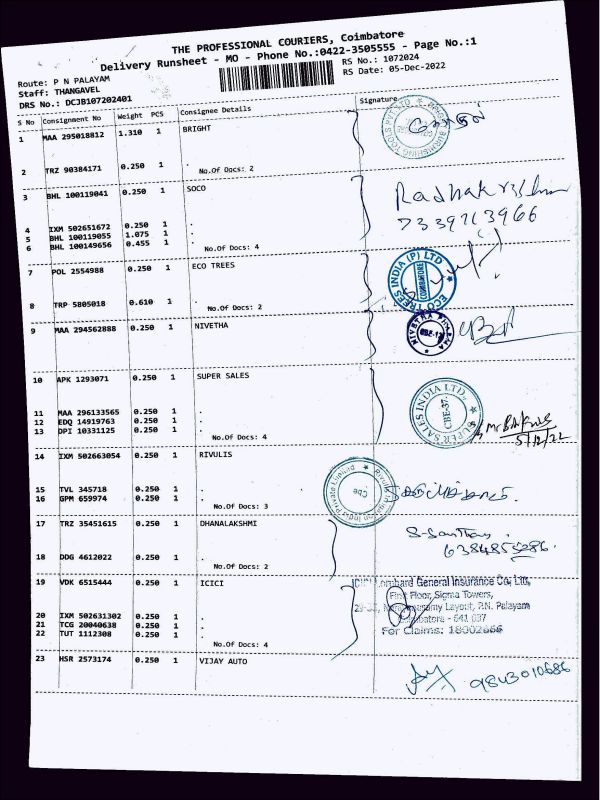 THE PROFESSIONAL COURIERS, Coimbatore
Delivery Runsheet - MO - Phone No.:0422-3505555 - Page No.:1
Route: P N PALAYAM
RS No.: 1072024
Staff: THANGAVEL
RS Date: 05-Dec-2022
DRS No.: DCJB107202401
S No Consignment No Weight PCS Consignee Details Signature
1 MAA 295018812 1.310 1 BRIGHT
2 TRZ 90384171 0.250 1 .
No.Of Docs: 2
3 BHL 100119041 0.250 1 SOCO
Radhakrishnan
7339713966
4 IXM 502651672 0.250 1 .
5 BHL 100119055 1.075 1 .
6 BHL 100149656 0.455 1 .
No.Of Docs: 4
7 POL 2554988 0.250 1 ECO TREES
ECO TREES INDIA (P) LTD
COIMBATORE
8 TRP 5805018 0.610 1 .
No.Of Docs: 2
9 MAA 294562888 0.250 1 NIVETHA
10 APK 1293071 0.250 1 SUPER SALES
SUPER SALES INDIA LTD.,
CBE-37.
11 MAA 296133565 0.250 1 .
12 EDQ 14919763 0.250 1 .
13 DPI 10331125 0.250 1 .
No.Of Docs: 4
5/12/22
14 IXM 502663054 0.250 1 RIVULIS
Rivulis Irrigation India Private Limited
Cbe
15 TVL 345718 0.250 1 .
16 GPM 659974 0.250 1 .
No.Of Docs: 3
17 TRZ 35451615 0.250 1 DHANALAKSHMI
18 DDG 4612022 0.250 1 .
No.Of Docs: 2
19 VDK 6515444 0.250 1 ICICI
Lombard General Insurance Co, Ltd,
First Floor, Sigma Towers,
Layout, P.N. Palayam
Coimbatore - 641 037
For Claims: 18002666
20 IXM 502631302 0.250 1 .
21 TCG 20040638 0.250 1 .
22 TUT 1112308 0.250 1 .
No.Of Docs: 4
23 HSR 2573174 0.250 1 VIJAY AUTO
9843010686